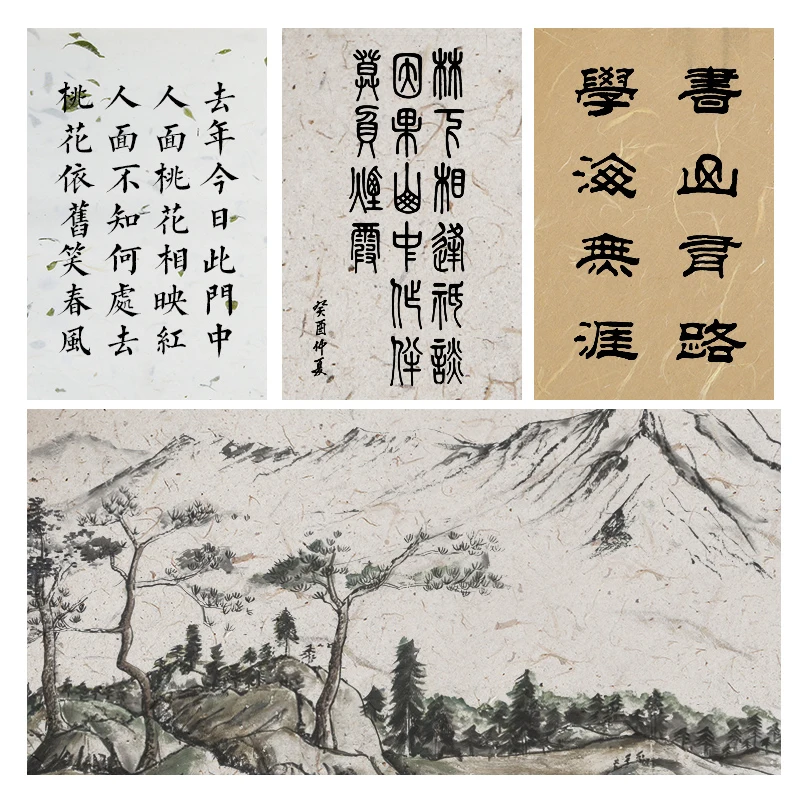 去年今日此門中
人面桃花相映紅
人面不知何處去
桃花依舊笑春風
林下相逢祇談
因果山中作伴
莫負煙霞
癸酉仲夏
書山有路
學海無涯